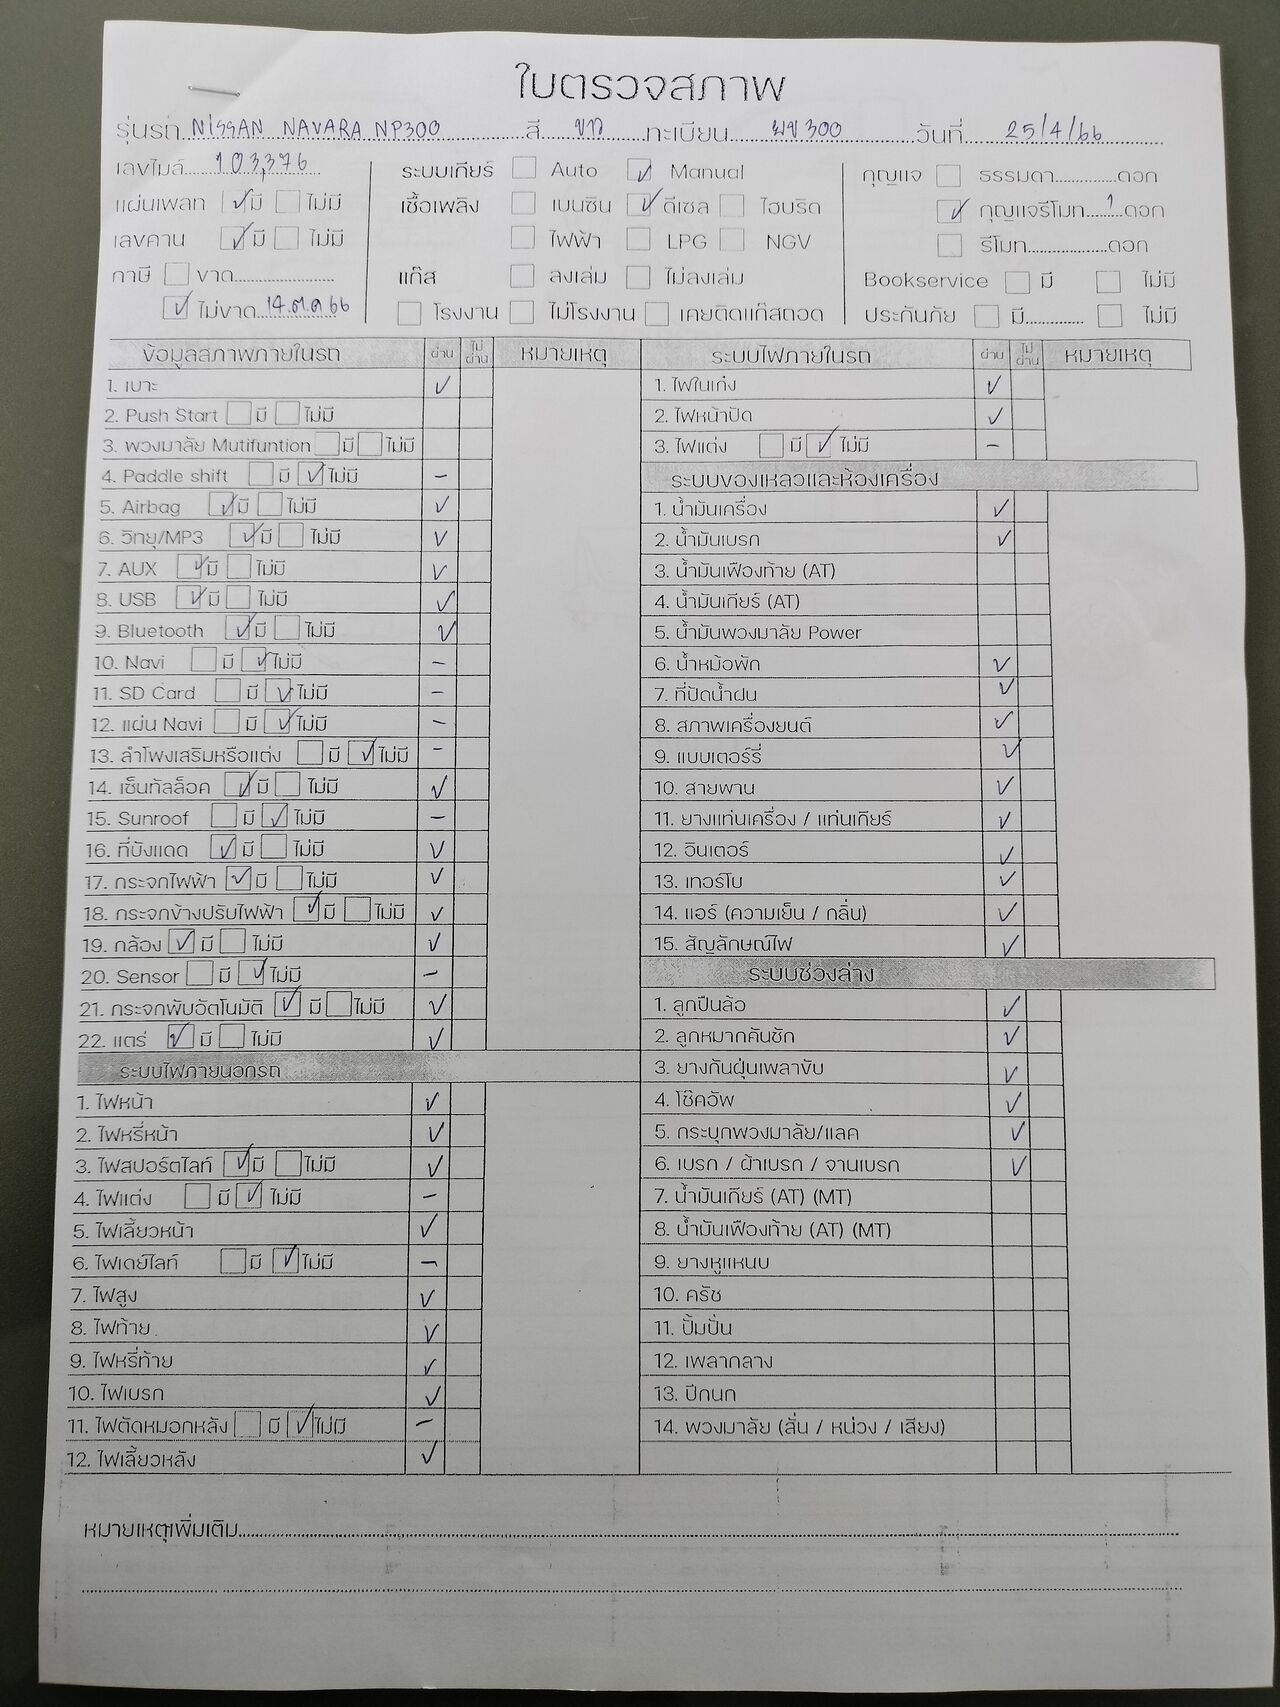 ใบตรวจสภาพ
รุ่นรถ NISSAN NAVARA NP300 สี ขาว ทะเบียน ผข 300 วันที่ 25/4/66
เลขไมล์ 103,376
แผ่นเพลท ☑ มี ☐ ไม่มี
เลขคาน ☑ มี ☐ ไม่มี
ภาษี ☐ ขาด
☑ ไม่ขาด 14.ต.ค 66
ระบบเกียร์ ☐ Auto ☑ Manual
เชื้อเพลิง ☐ เบนซิน ☑ ดีเซล ☐ ไฮบริด
☐ ไฟฟ้า ☐ LPG ☐ NGV
แก๊ส ☐ ลงเล่ม ☐ ไม่ลงเล่ม
☐ โรงงาน ☐ ไม่โรงงาน ☐ เคยติดแก๊สถอด
กุญแจ ☐ ธรรมดา ดอก
☑ กุญแจรีโมท 1 ดอก
☐ รีโมท ดอก
Bookservice ☐ มี ☐ ไม่มี
ประกันภัย ☐ มี ☐ ไม่มี
ข้อมูลสภาพภายในรถ ผ่าน ไม่ผ่าน หมายเหตุ
1. เบาะ ✓
2. Push Start ☐ มี ☐ ไม่มี
3. พวงมาลัย Mutifuntion ☐ มี ☐ ไม่มี
4. Paddle shift ☐ มี ☑ ไม่มี –
5. Airbag ☑ มี ☐ ไม่มี ✓
6. วิทยุ/MP3 ☑ มี ☐ ไม่มี ✓
7. AUX ☑ มี ☐ ไม่มี ✓
8. USB ☑ มี ☐ ไม่มี ✓
9. Bluetooth ☑ มี ☐ ไม่มี ✓
10. Navi ☐ มี ☑ ไม่มี –
11. SD Card ☐ มี ☑ ไม่มี –
12. แผ่น Navi ☐ มี ☑ ไม่มี –
13. ลำโพงเสริมหรือแต่ง ☐ มี ☑ ไม่มี –
14. เซ็นทัลล็อค ☑ มี ☐ ไม่มี ✓
15. Sunroof ☐ มี ☑ ไม่มี –
16. ที่บังแดด ☑ มี ☐ ไม่มี ✓
17. กระจกไฟฟ้า ☑ มี ☐ ไม่มี ✓
18. กระจกข้างปรับไฟฟ้า ☑ มี ☐ ไม่มี ✓
19. กล้อง ☑ มี ☐ ไม่มี ✓
20. Sensor ☐ มี ☑ ไม่มี –
21. กระจกพับอัตโนมัติ ☑ มี ☐ ไม่มี ✓
22. แตร่ ☑ มี ☐ ไม่มี ✓
ระบบไฟภายนอกรถ
1. ไฟหน้า ✓
2. ไฟหรี่หน้า ✓
3. ไฟสปอร์ตไลท์ ☑ มี ☐ ไม่มี ✓
4. ไฟแต่ง ☐ มี ☑ ไม่มี –
5. ไฟเลี้ยวหน้า ✓
6. ไฟเดย์ไลท์ ☐ มี ☑ ไม่มี –
7. ไฟสูง ✓
8. ไฟท้าย ✓
9. ไฟหรี่ท้าย ✓
10. ไฟเบรก ✓
11. ไฟตัดหมอกหลัง ☐ มี ☑ ไม่มี –
12. ไฟเลี้ยวหลัง ✓
ระบบไฟภายในรถ ผ่าน ไม่ผ่าน หมายเหตุ
1. ไฟในเก๋ง ✓
2. ไฟหน้าปัด ✓
3. ไฟแต่ง ☐ มี ☑ ไม่มี –
ระบบของเหลวและห้องเครื่อง
1. น้ำมันเครื่อง ✓
2. น้ำมันเบรก ✓
3. น้ำมันเฟืองท้าย (AT)
4. น้ำมันเกียร์ (AT)
5. น้ำมันพวงมาลัย Power
6. น้ำหม้อพัก ✓
7. ที่ปัดน้ำฝน ✓
8. สภาพเครื่องยนต์ ✓
9. แบบเตอร์รี่ ✓
10. สายพาน ✓
11. ยางแท่นเครื่อง / แท่นเกียร์ ✓
12. อินเตอร์ ✓
13. เทอร์โบ ✓
14. แอร์ (ความเย็น / กลิ่น) ✓
15. สัญลักษณ์ไฟ ✓
ระบบช่วงล่าง
1. ลูกปืนล้อ ✓
2. ลูกหมากคันชัก ✓
3. ยางกันฝุ่นเพลาขับ ✓
4. โช๊คอัพ ✓
5. กระบุกพวงมาลัย/แลค ✓
6. เบรก / ผ้าเบรก / จานเบรก ✓
7. น้ำมันเกียร์ (AT) (MT)
8. น้ำมันเฟืองท้าย (AT) (MT)
9. ยางหูแหนบ
10. ครัช
11. ปั้มปั่น
12. เพลากลาง
13. ปีกนก
14. พวงมาลัย (สั่น / หน่วง / เสียง)
หมายเหตุเพิ่มเติม